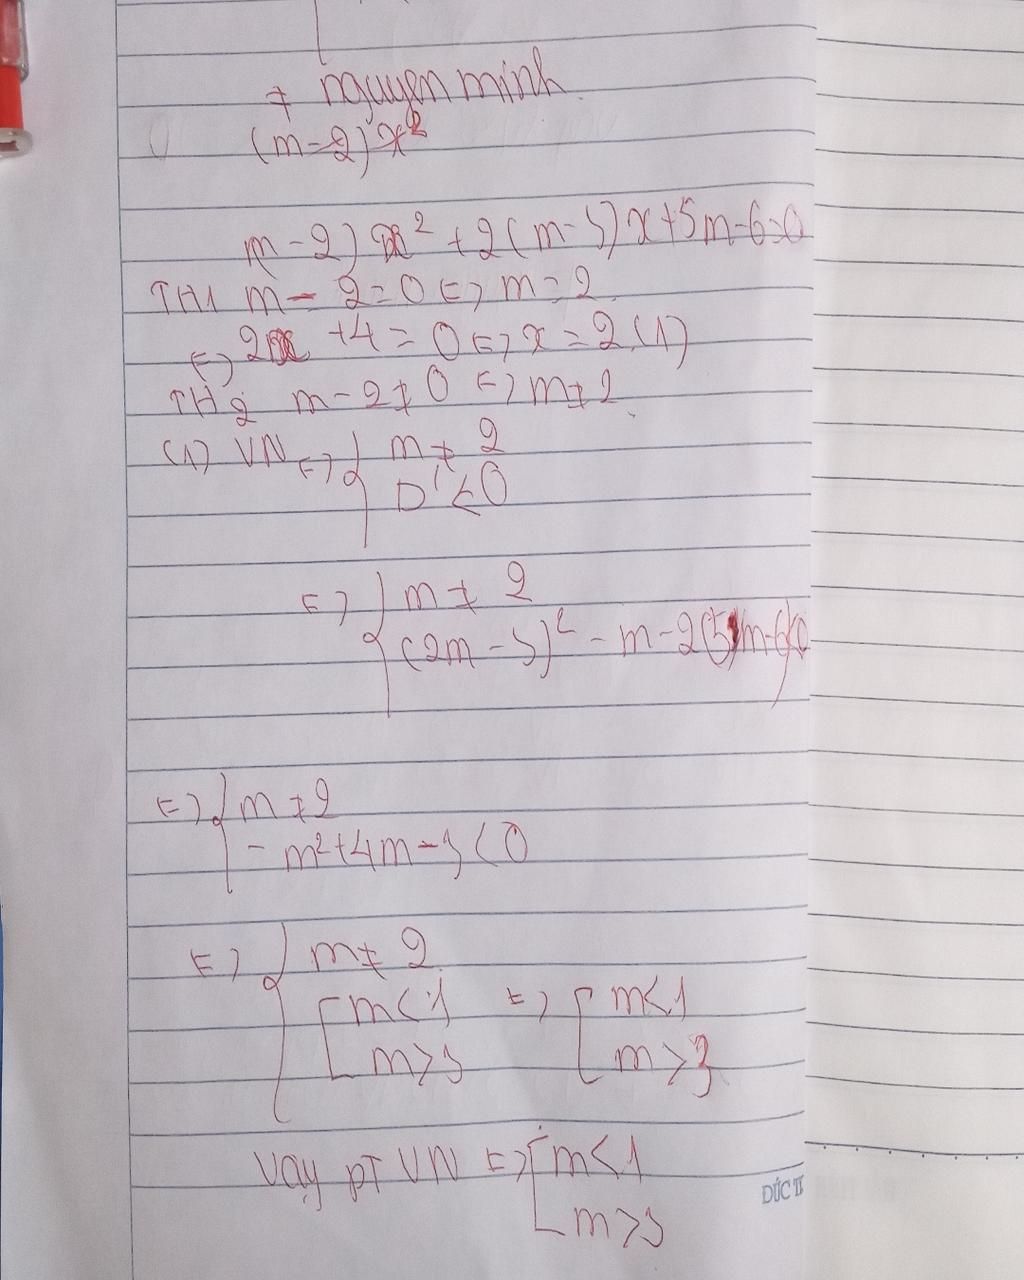 ≠ nguyen minh
(m-2)x²
m-2)x²+2(m-3)x+5m-6=0
TH1 m-2=0 <=> m=2
<=> 2x+4=0 <=> x=2 (1)
TH2 m-2≠0 <=> m≠2
(1) VN <=> { m≠2
D'<0
<=> { m≠2
(2m-3)²-m-2(5m-6)<0
<=> { m≠2
-m²+4m-3<0
<=> { m≠2
[ m<1 <=> [ m<1
m>3 m>3
Vay pT VN <=> [ m<1
m>3
ĐỨC